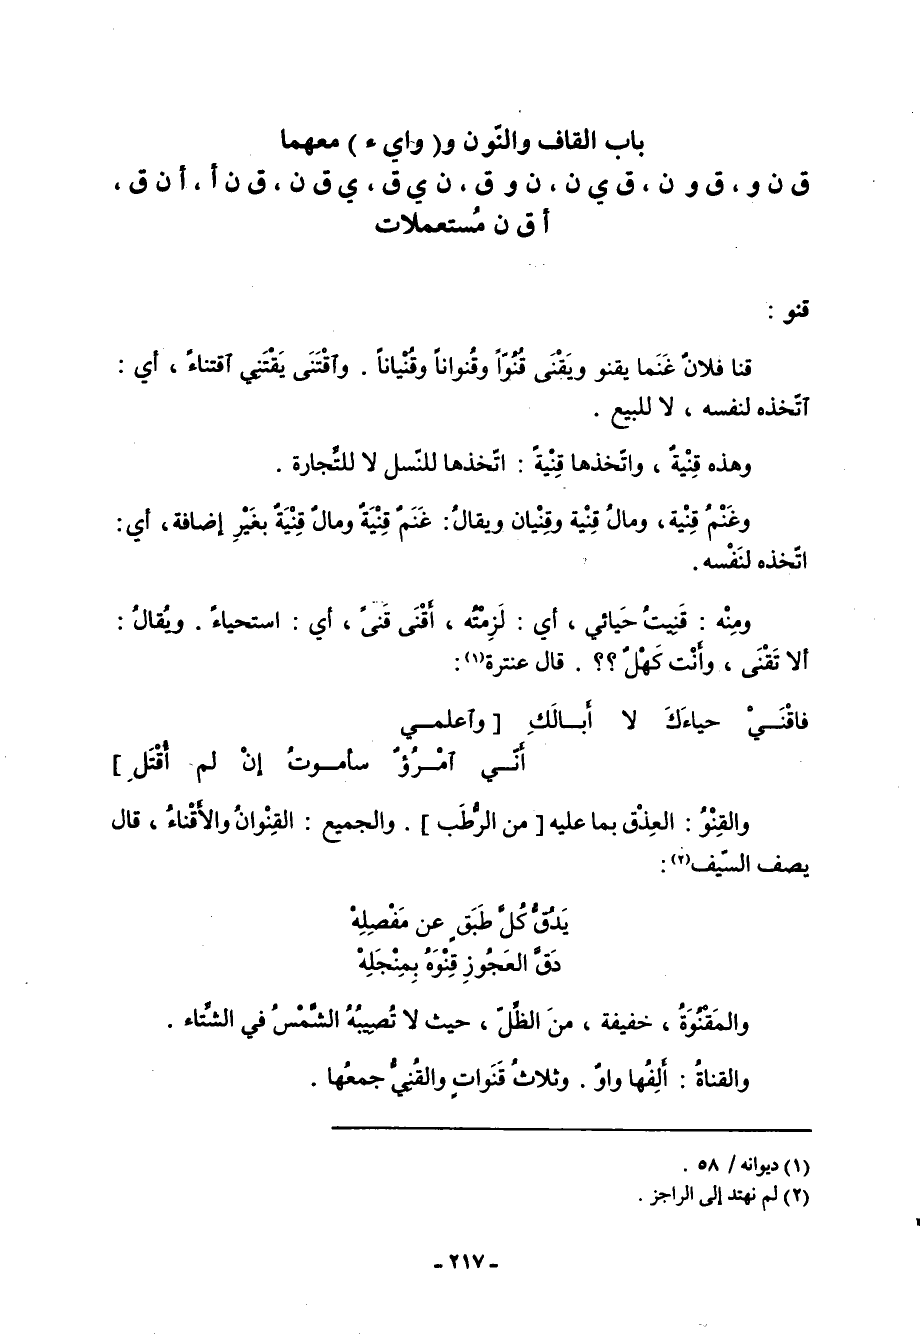 باب القاف والنّون و( واي ء ) معهما
ق ن و ، ق و ن ، ق ي ن ، ن و ق ، ن ي ق ، ي ق ن ، ق ن أ ، أ ن ق ،
أ ق ن مُستعملات
قنو :
قنا فلانٌ غَنَما يقنو ويَقْنَى قُنُوّاً وقُنواناً وقُنْياناً . وآقْتَنَى يَقْتَنِي آقتناءً ، أي :
آتّخذه لنفسه ، لا للبيع .
وهذه قِنْيةٌ ، واتّخذها قِنْيةً : اتّخذها للنّسل لا للتُّجارة .
وغَنْمُ قِنْية، ومالُ قِنْية وقِنْيان ويقالُ: غَنَمٌ قِنْيَةٌ ومالٌ قِنْيَةٌ بغَيْرِ إضافة، أي:
اتّخذه لنَفْسه.
ومِنْه : قَنِيتُ حَيائي ، أي : لَزِمْتُه ، أَقْنَى قَنىً ، أي : استحياءً . ويُقالُ :
ألا تَقْنَى ، وأَنْت كَهْلٌ ؟؟ . قال عنترة(١):
فاقْنَـيْ حياءَكَ لا أَبـالَكِ [ وآعلمـي
أنّـي آمْـرُؤٌ سأمـوتُ إنْ لم أُقْتَلِ ]
والقِنْوُ : العِذْق بما عليه [ من الرُّطَب ] . والجميع : القِنْوانُ والأَقْناءُ ، قال
يصف السّيف(٢):
يَدُقُّ كُلَّ طَبَقٍ عن مَفْصِلِهْ
دَقَّ العَجُوزِ قِنْوَهُ بِمِنْجَلِهْ
والمَقْنُوَةُ ، خفيفة ، منَ الظِّلّ ، حيث لا تُصِيبُهُ الشَّمْسُ في الشِّتاء .
والقناةُ : أَلِفُها واوٌ . وثلاثُ قَنَواتٍ والقُنِيُّ جمعُها .
(١) ديوانه / ٥٨ .
(٢) لم نهتد إلى الراجز .
- ٢١٧ -